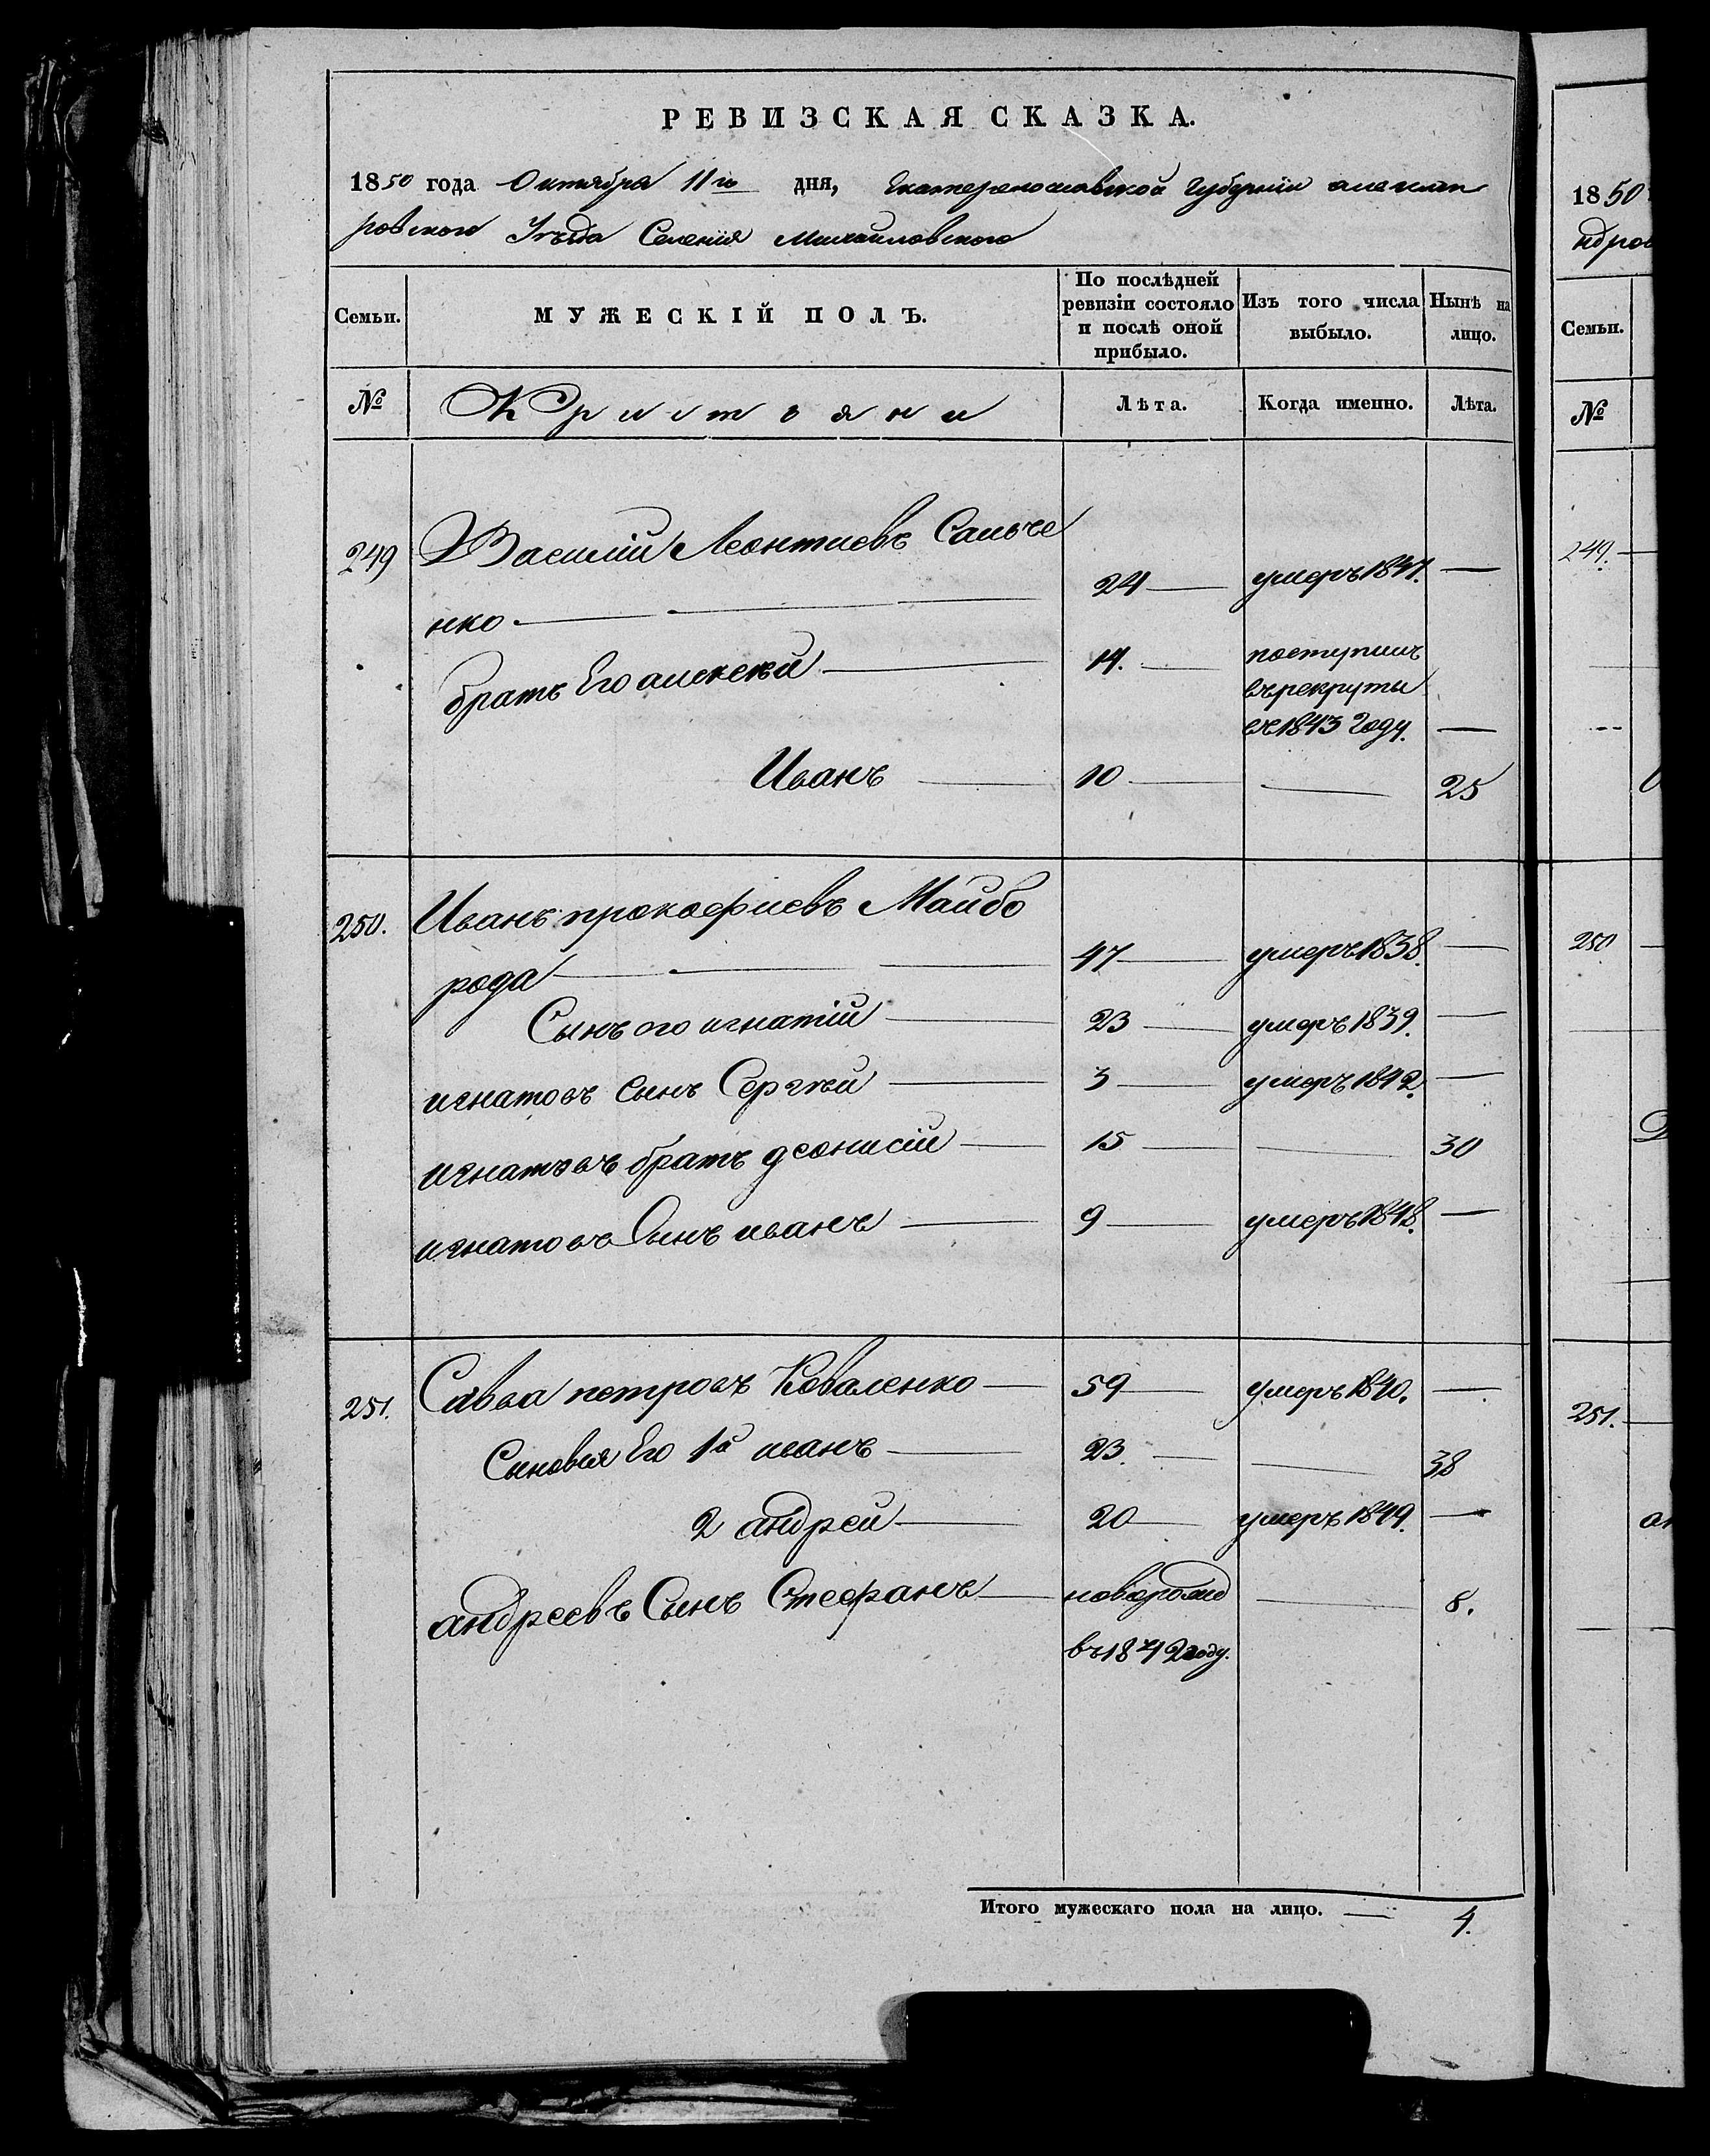 РЕВИЗСКАЯ СКАЗКА.
1850 года Октября 11го дня, Екатеренославской Губернии александ
ровского Уезда Селения Михайловского
Семьи. МУЖЕСКІЙ ПОЛЪ. По послѣдней ревизіи состояло и послѣ оной прибыло. Изъ того числа выбыло. Нынѣ на лицо.
№ Кристьяни Лѣта. Когда именно. Лѣта.
249 Василій Леонтиевъ Сальче
нко 24 умеръ 1847.
братъ Его алексѣй 14. поступилъ
въ рекруты
въ 1843 году.
Иванъ 10 25
250. Иванъ прокофиевъ Майбо
рода 47 умеръ 1838.
Сынъ его игнатій 23 умеръ 1839.
игнатовъ сынъ Сергѣй 3 умеръ 1842.
игнатовъ братъ деонисій 15 30
игнатовъ Сынъ иванъ 9 умеръ 1848.
251. Савва петровъ Коваленко 59 умеръ 1840.
Сыновья Его 1й иванъ 23. 38
2 андрей 20 умеръ 1849.
андреевъ Сынъ Стефанъ новорожд 8.
въ 1842 году.
Итого мужескаго пола на лицо. 4.
1850
ндров
Семьи.
№
249.
250
251.